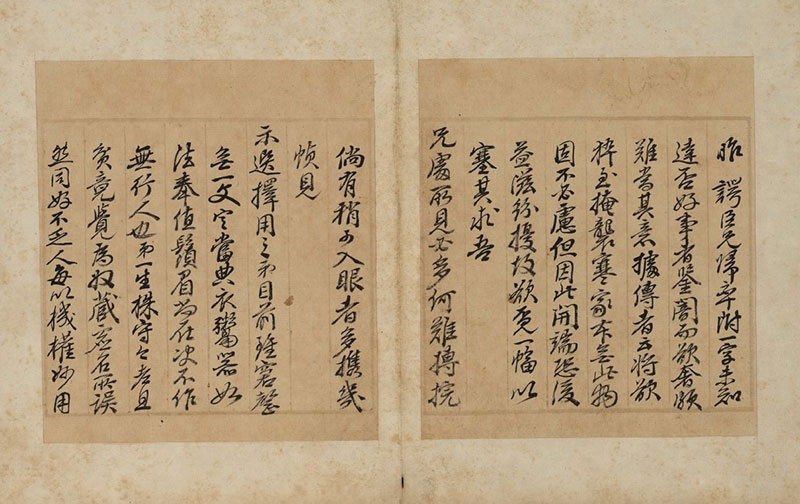 昨諤臣兄歸草附一字未知
達否好事者鑒閣而欲奢頗
難當其意據傳者云將欲
猝至掩襲寒家本無此物
固不必慮但因此開端恐後
益滋紛擾故欲覓一幅以
塞其求吾
兄處所見必多何難搏捖
倘有稍可入眼者多攜幾
幀見
示選擇用之弟目前雖窘罄
無一文定當典衣鬻器如
法奉值鬚眉尚在決不作
無行人也弟一生株守之老且
貧竟覺為收藏虛名所誤
然同好不乏人每以機權妙用